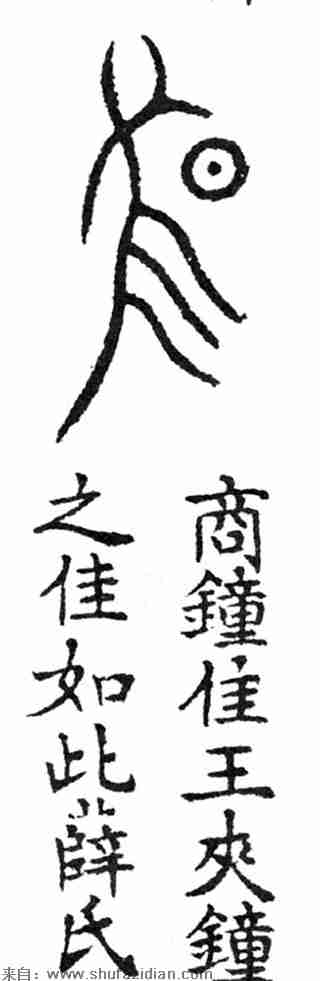 商鐘隹王夾鐘
之佳如此薛氏
来自：www.shufazidian.com